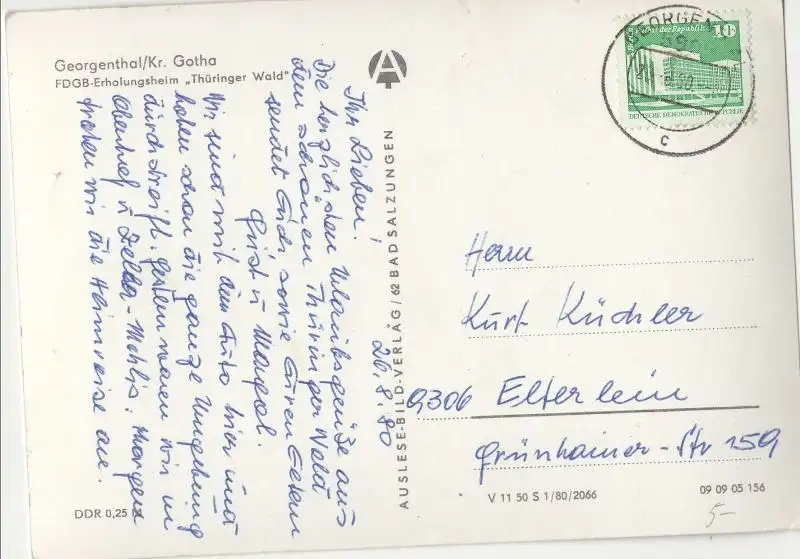 Georgenthal/Kr. Gotha
FDGB-Erholungsheim „Thüringer Wald"
26.8.80
Ihr Lieben!
Die herzlichsten Urlaubsgrüße aus
dem schönen Thüringer Wald
sendet Euch sowie Euren Eltern
Güst u Margot.
Wir sind mit dem Auto hier und
haben schon die ganze Umgebung
durchstreift. Gestern waren wir in
Oberhof u Zella-Mehlis. Morgen
treten wir die Heimreise an.
DDR 0,25 M
AUSLESE-BILD-VERLAG/62 BAD SALZUNGEN
GEORGEN
10
der Republik
DEUTSCHE DEMOKRATISCHE REPUBLIK
80
c
Herrn
Kurt Küchler
9306 Elterlein
Grünhainer-Str 159
V 11 50 S 1/80/2066
09 09 05 156
5-